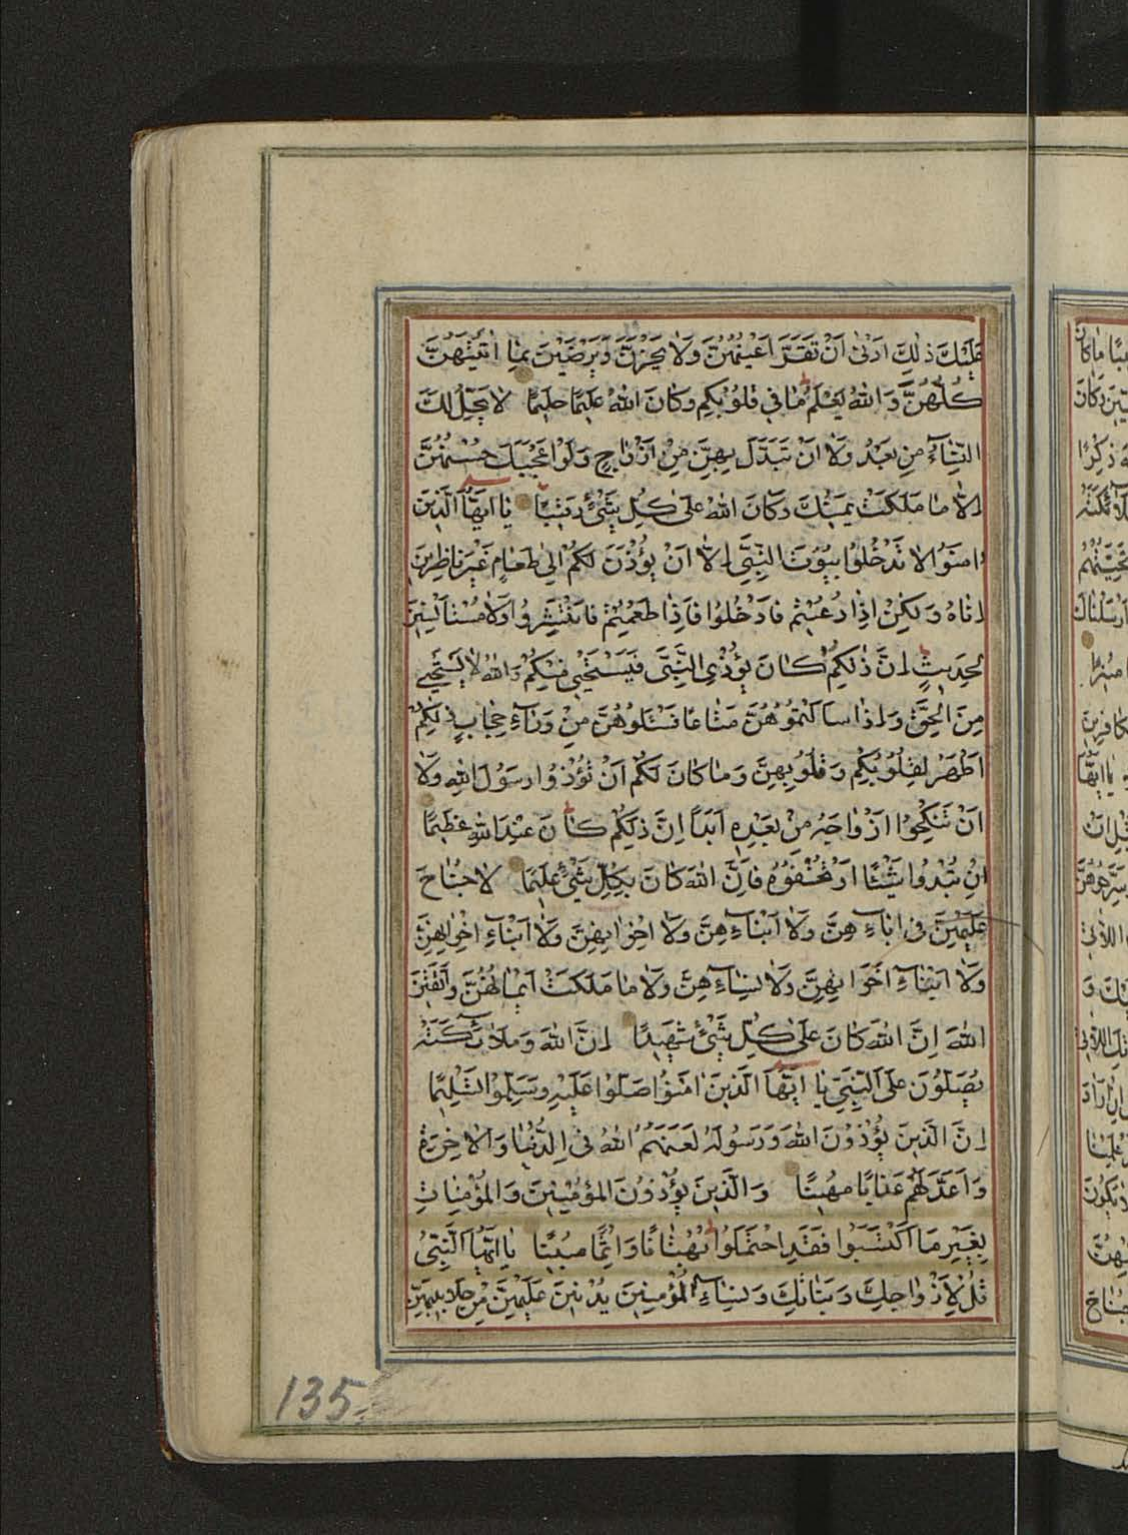 عَلَيْكَ ذٰلِكَ اَدْنٰى اَنْ تَقَرَّ اَعْيُنُهُنَّ وَلَا يَحْزَنَّ وَيَرْضَيْنَ بِمَا اٰتَيْتَهُنَّ
كُلُّهُنَّ وَاللّٰهُ يَعْلَمُ مَا فِي قُلُوبِكُمْ وَكَانَ اللّٰهُ عَلِيمًا حَلِيمًا لَا يَحِلُّ لَكَ
النِّسَاءُ مِنْ بَعْدُ وَلَا اَنْ تَبَدَّلَ بِهِنَّ مِنْ اَزْوَاجٍ وَلَوْ اَعْجَبَكَ حُسْنُهُنَّ
اِلَّا مَا مَلَكَتْ يَمِينُكَ وَكَانَ اللّٰهُ عَلٰى كُلِّ شَيْءٍ رَقِيبًا يَا اَيُّهَا الَّذِينَ
اٰمَنُوا لَا تَدْخُلُوا بُيُوتَ النَّبِيِّ اِلَّا اَنْ يُؤْذَنَ لَكُمْ اِلٰى طَعَامٍ غَيْرَ نَاظِرِينَ
اِنَاهُ وَلٰكِنْ اِذَا دُعِيتُمْ فَادْخُلُوا فَاِذَا طَعِمْتُمْ فَانْتَشِرُوا وَلَا مُسْتَاْنِسِينَ
لِحَدِيثٍ اِنَّ ذٰلِكُمْ كَانَ يُؤْذِي النَّبِيَّ فَيَسْتَحْيِي مِنْكُمْ وَاللّٰهُ لَا يَسْتَحْيِي
مِنَ الْحَقِّ وَاِذَا سَاَلْتُمُوهُنَّ مَتَاعًا فَسْئَلُوهُنَّ مِنْ وَرَاءِ حِجَابٍ ذٰلِكُمْ
اَطْهَرُ لِقُلُوبِكُمْ وَقُلُوبِهِنَّ وَمَا كَانَ لَكُمْ اَنْ تُؤْذُوا رَسُولَ اللّٰهِ وَلَا
اَنْ تَنْكِحُوا اَزْوَاجَهُ مِنْ بَعْدِهِ اَبَدًا اِنَّ ذٰلِكُمْ كَانَ عِنْدَ اللّٰهِ عَظِيمًا
اِنْ تُبْدُوا شَيْئًا اَوْ تُخْفُوهُ فَاِنَّ اللّٰهَ كَانَ بِكُلِّ شَيْءٍ عَلِيمًا لَا جُنَاحَ
عَلَيْهِنَّ فِي اٰبَاءِهِنَّ وَلَا اَبْنَاءِهِنَّ وَلَا اِخْوَانِهِنَّ وَلَا اَبْنَاءِ اِخْوَانِهِنَّ
وَلَا اَبْنَاءِ اَخَوَاتِهِنَّ وَلَا نِسَاءِهِنَّ وَلَا مَا مَلَكَتْ اَيْمَانُهُنَّ وَاتَّقِينَ
اللّٰهَ اِنَّ اللّٰهَ كَانَ عَلٰى كُلِّ شَيْءٍ شَهِيدًا اِنَّ اللّٰهَ وَمَلَائِكَتَهُ
يُصَلُّونَ عَلَى النَّبِيِّ يَا اَيُّهَا الَّذِينَ اٰمَنُوا صَلُّوا عَلَيْهِ وَسَلِّمُوا تَسْلِيمًا
اِنَّ الَّذِينَ يُؤْذُونَ اللّٰهَ وَرَسُولَهُ لَعَنَهُمُ اللّٰهُ فِي الدُّنْيَا وَالْاٰخِرَةِ
وَاَعَدَّ لَهُمْ عَذَابًا مُهِينًا وَالَّذِينَ يُؤْذُونَ الْمُؤْمِنِينَ وَالْمُؤْمِنَاتِ
بِغَيْرِ مَا اكْتَسَبُوا فَقَدِ احْتَمَلُوا بُهْتَانًا وَاِثْمًا مُبِينًا يَا اَيُّهَا النَّبِيُّ
قُلْ لِاَزْوَاجِكَ وَبَنَاتِكَ وَنِسَاءِ الْمُؤْمِنِينَ يُدْنِينَ عَلَيْهِنَّ مِنْ جَلَابِيبِهِنَّ
135